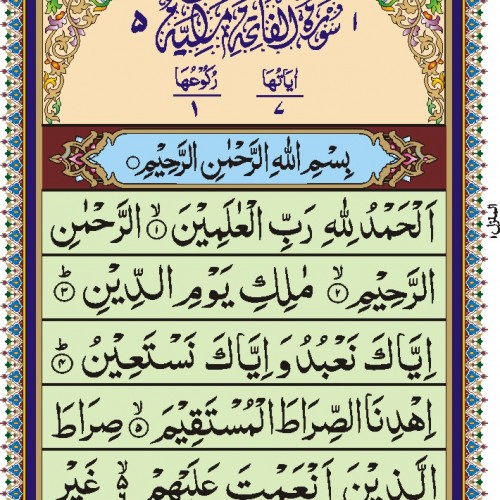 ١ سُوْرَةُ الْفَاتِحَةِ مَكِّيَّةٌ ٥
اٰيَاتُهَا رُكُوْعُهَا
٧ ١
بِسْمِ اللهِ الرَّحْمٰنِ الرَّحِيْمِ
اَلْحَمْدُ لِلّٰهِ رَبِّ الْعٰلَمِيْنَ ۙ﴿١﴾ الرَّحْمٰنِ
الرَّحِيْمِ ۙ﴿٢﴾ مٰلِكِ يَوْمِ الدِّيْنِ ؕ﴿٣﴾
اِيَّاكَ نَعْبُدُ وَ اِيَّاكَ نَسْتَعِيْنُ ؕ﴿٤﴾
اِهْدِنَا الصِّرَاطَ الْمُسْتَقِيْمَ ۙ﴿٥﴾ صِرَاطَ
الَّذِيْنَ اَنْعَمْتَ عَلَيْهِمْ ۙ۬ غَيْرِ